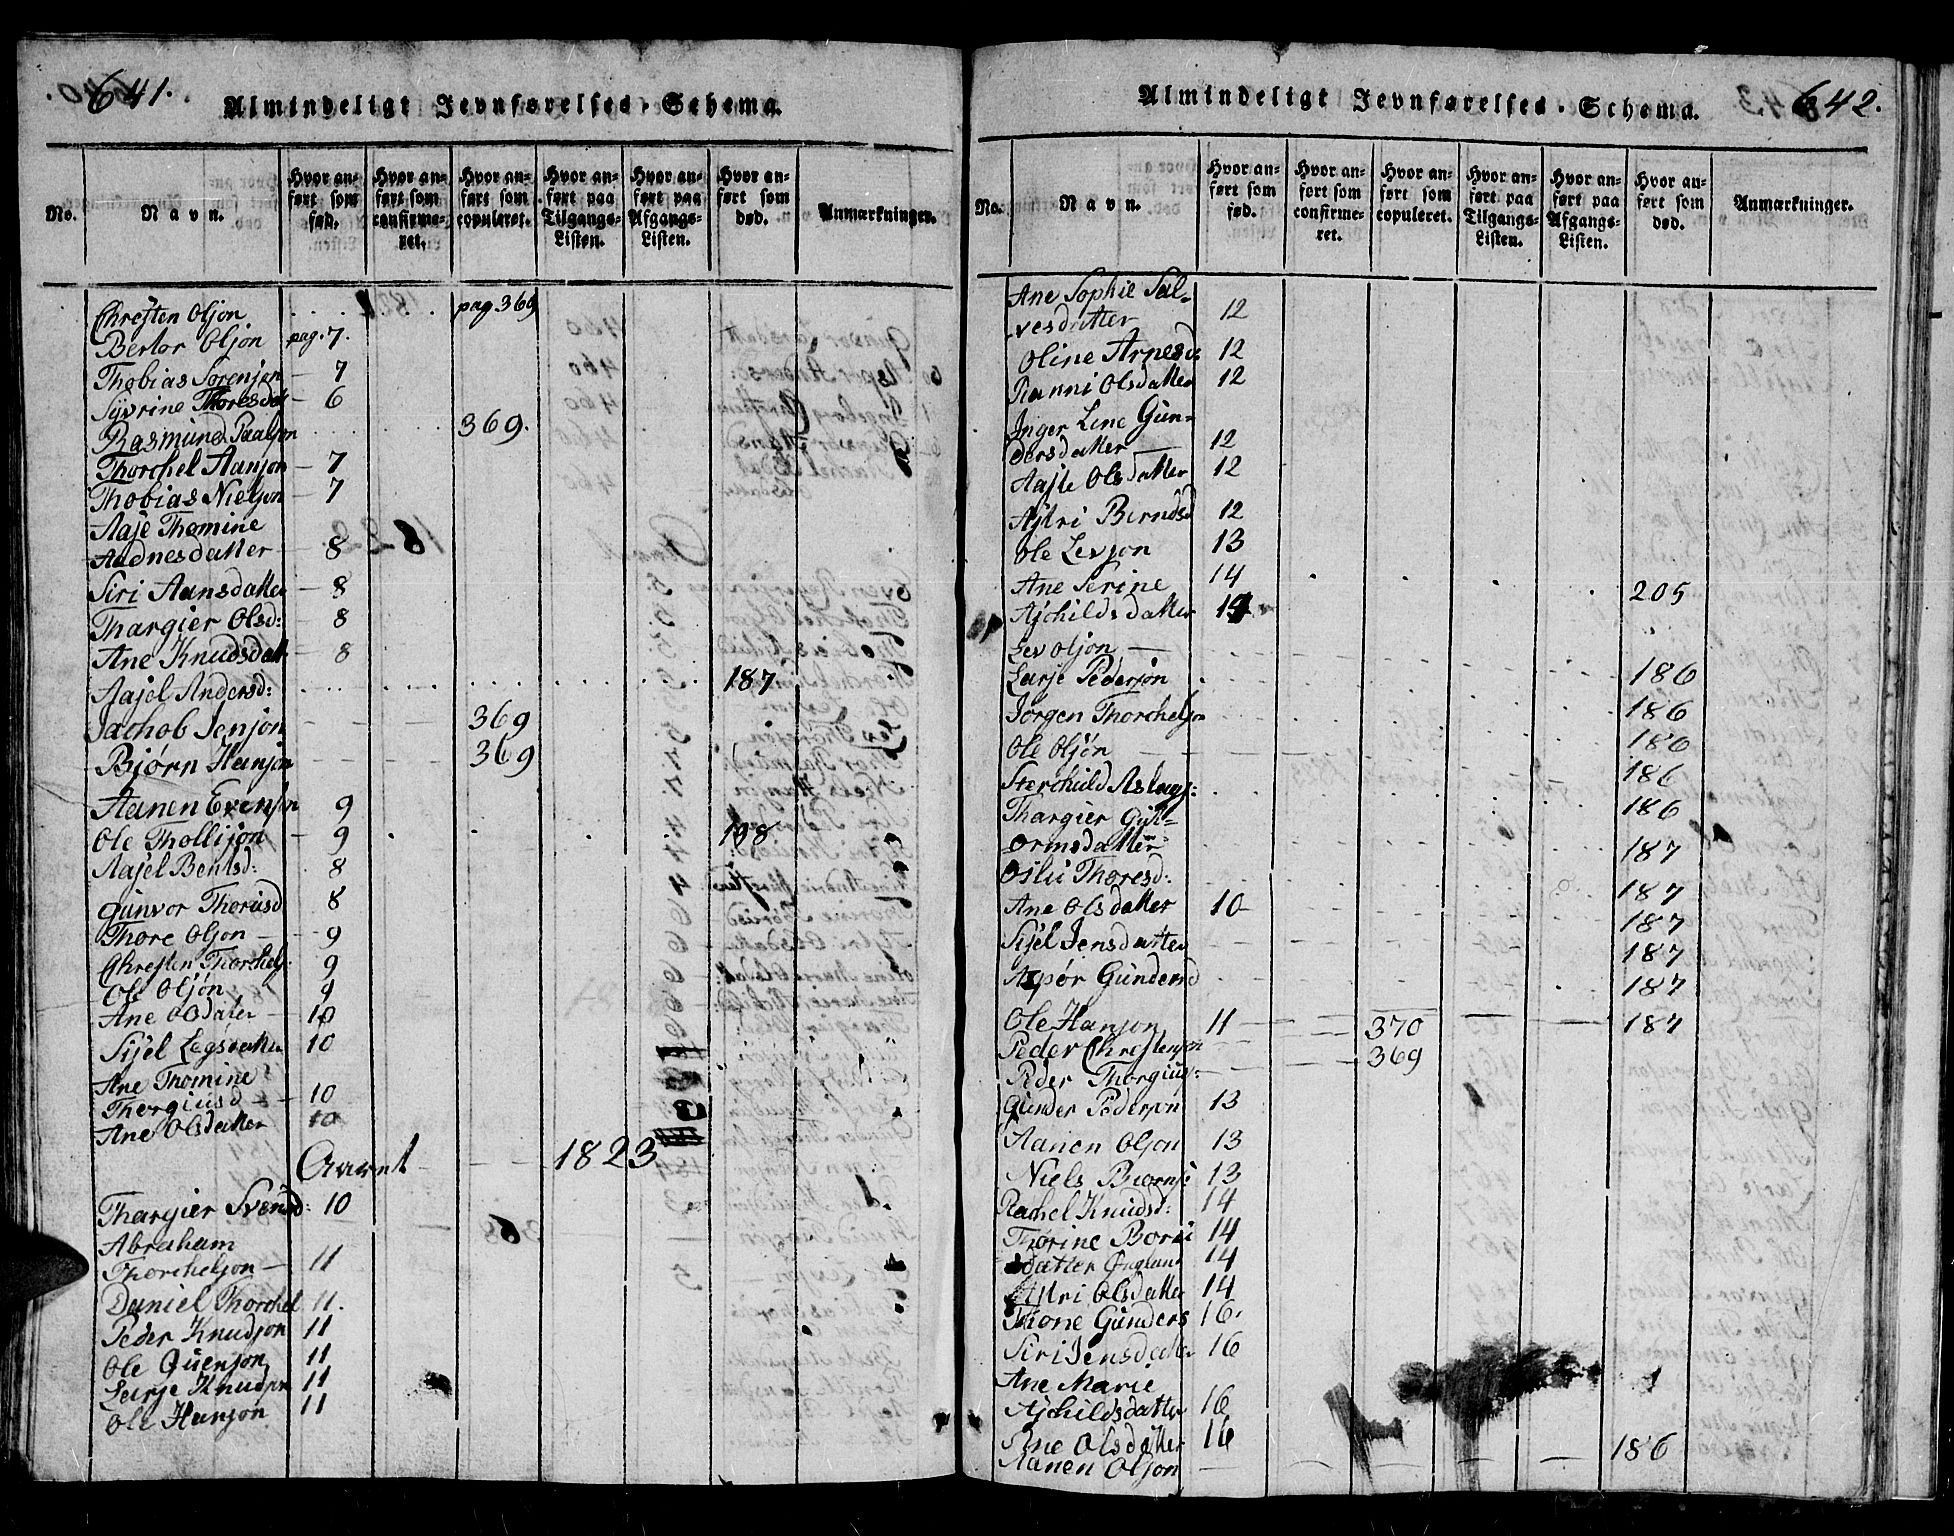 641.
Almindeligt Jevnførelses-Schema.
No.
Navn.
Hvor anført som fød.
Hvor anført som confirmeret.
Hvor anført som copuleret.
Hvor anført paa Tilgangs-Listen.
Hvor anført paa Afgangs-Listen.
Hvor anført som død.
Anmærkninger.
Chresten Olson pag. 369
Berter Olson pag. 7.
Thobias Sörensen 7
Syvrine Thoresdat 6
Rasmund Paalson 369.
Thorchel Aanson 7
Thobias Nielson 7
Aase Thomine
Aadnesdatter 8
Siri Aansdatter 8
Thargier Olsd: 8
Ane Knudsdatt 8
Aasel Andersd: 187
Jachob Jenson 369
Bjørn Hanson 369
Aanen Evenson 9
Ole Thollison 9 198
Aasel Bentsd: 8
Gunvor Thorusd 8
Thore Olson 9
Chresten Thorchels: 9
Ole Olsøn 9
Ane Olsdater 10
Sisel Legsdatter 10
Ane Thomine
Thorgiusd 10
Ane Olsdatter 10
Aaret 1823
Thargier Svensd: 10
Abraham
Thorchelson 11
Daniel Thorchel 11.
Peder Knudson 11
Ole Guenson 11
Larse Knudson 11
Ole Hanson 11
642.
Almindeligt Jevnførelses-Schema.
No.
Navn.
Hvor anført som fød.
Hvor anført som confirmeret.
Hvor anført som copuleret.
Hvor anført paa Tilgangs-Listen.
Hvor anført paa Afgangs-Listen.
Hvor anført som død.
Anmærkninger.
Ane Sophie Sal-
vesdatter 12
Oline Arnesd: 12
Ranni Olsdatter 12
Inger Line Gun-
dersdatter 12
Aaste Olsdatter 12
Astri Berndsd 12
Ole Levson 13
Ane Serine 14
Aschildsdatter 14 205
Lev Olson
Larse Pedersøn 186
Jörgen Thorchelson 186
Ole Olsön 186
Sterchuld Aslags: 186
Thargier Gut- 186
ormsdatter 187
Oslu Thoresd: 187
Ane Olsdatter 10 187
Sisel Jensdatter 187
Aspør Gundersd 187
Ole Hanson 11 370 187
Peder Chrestenson 369
Peder Thorgius:
Gunder Pederson 13
Aanen Olson 13
Niels Biorns: 13
Rachel Knudsd: 14
Thorine Boru 14
sdatter 14
Astri Olsdatter 14
Thone Gunders 16.
Siri Jensdatter 16
Ane Marie
Aschildsdatter 16
Ane Olsdatter 16
Aanen Olson 186